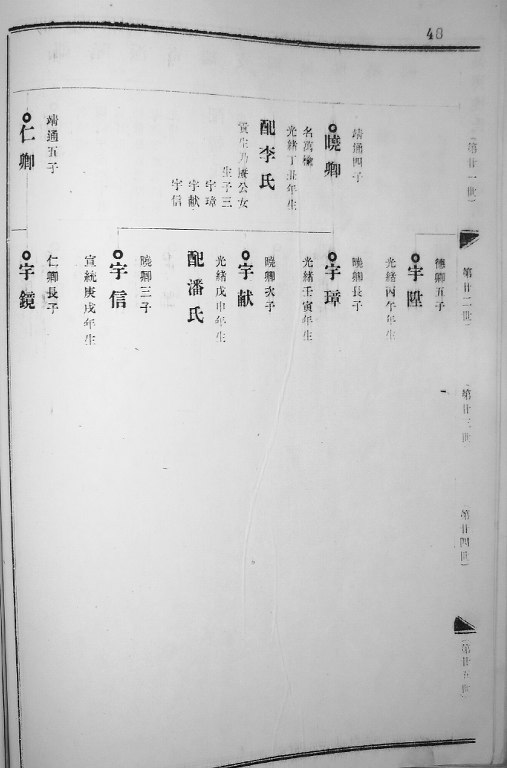 40
第廿一世
靖通四子
曉卿
名萬棆
光緒丁丑年生
配李氏
貢生乃賡公女
生子三
宇璋
宇献
宇信
靖通五子
仁卿
第廿二世
德卿五子
宇陞
光緒丙午年生
曉卿長子
宇璋
光緒壬寅年生
曉卿次子
宇献
光緒戊申年生
配潘氏
曉卿三子
宇信
宣統庚戌年生
仁卿長子
宇鏡
第廿三世
第廿四世
第廿五世